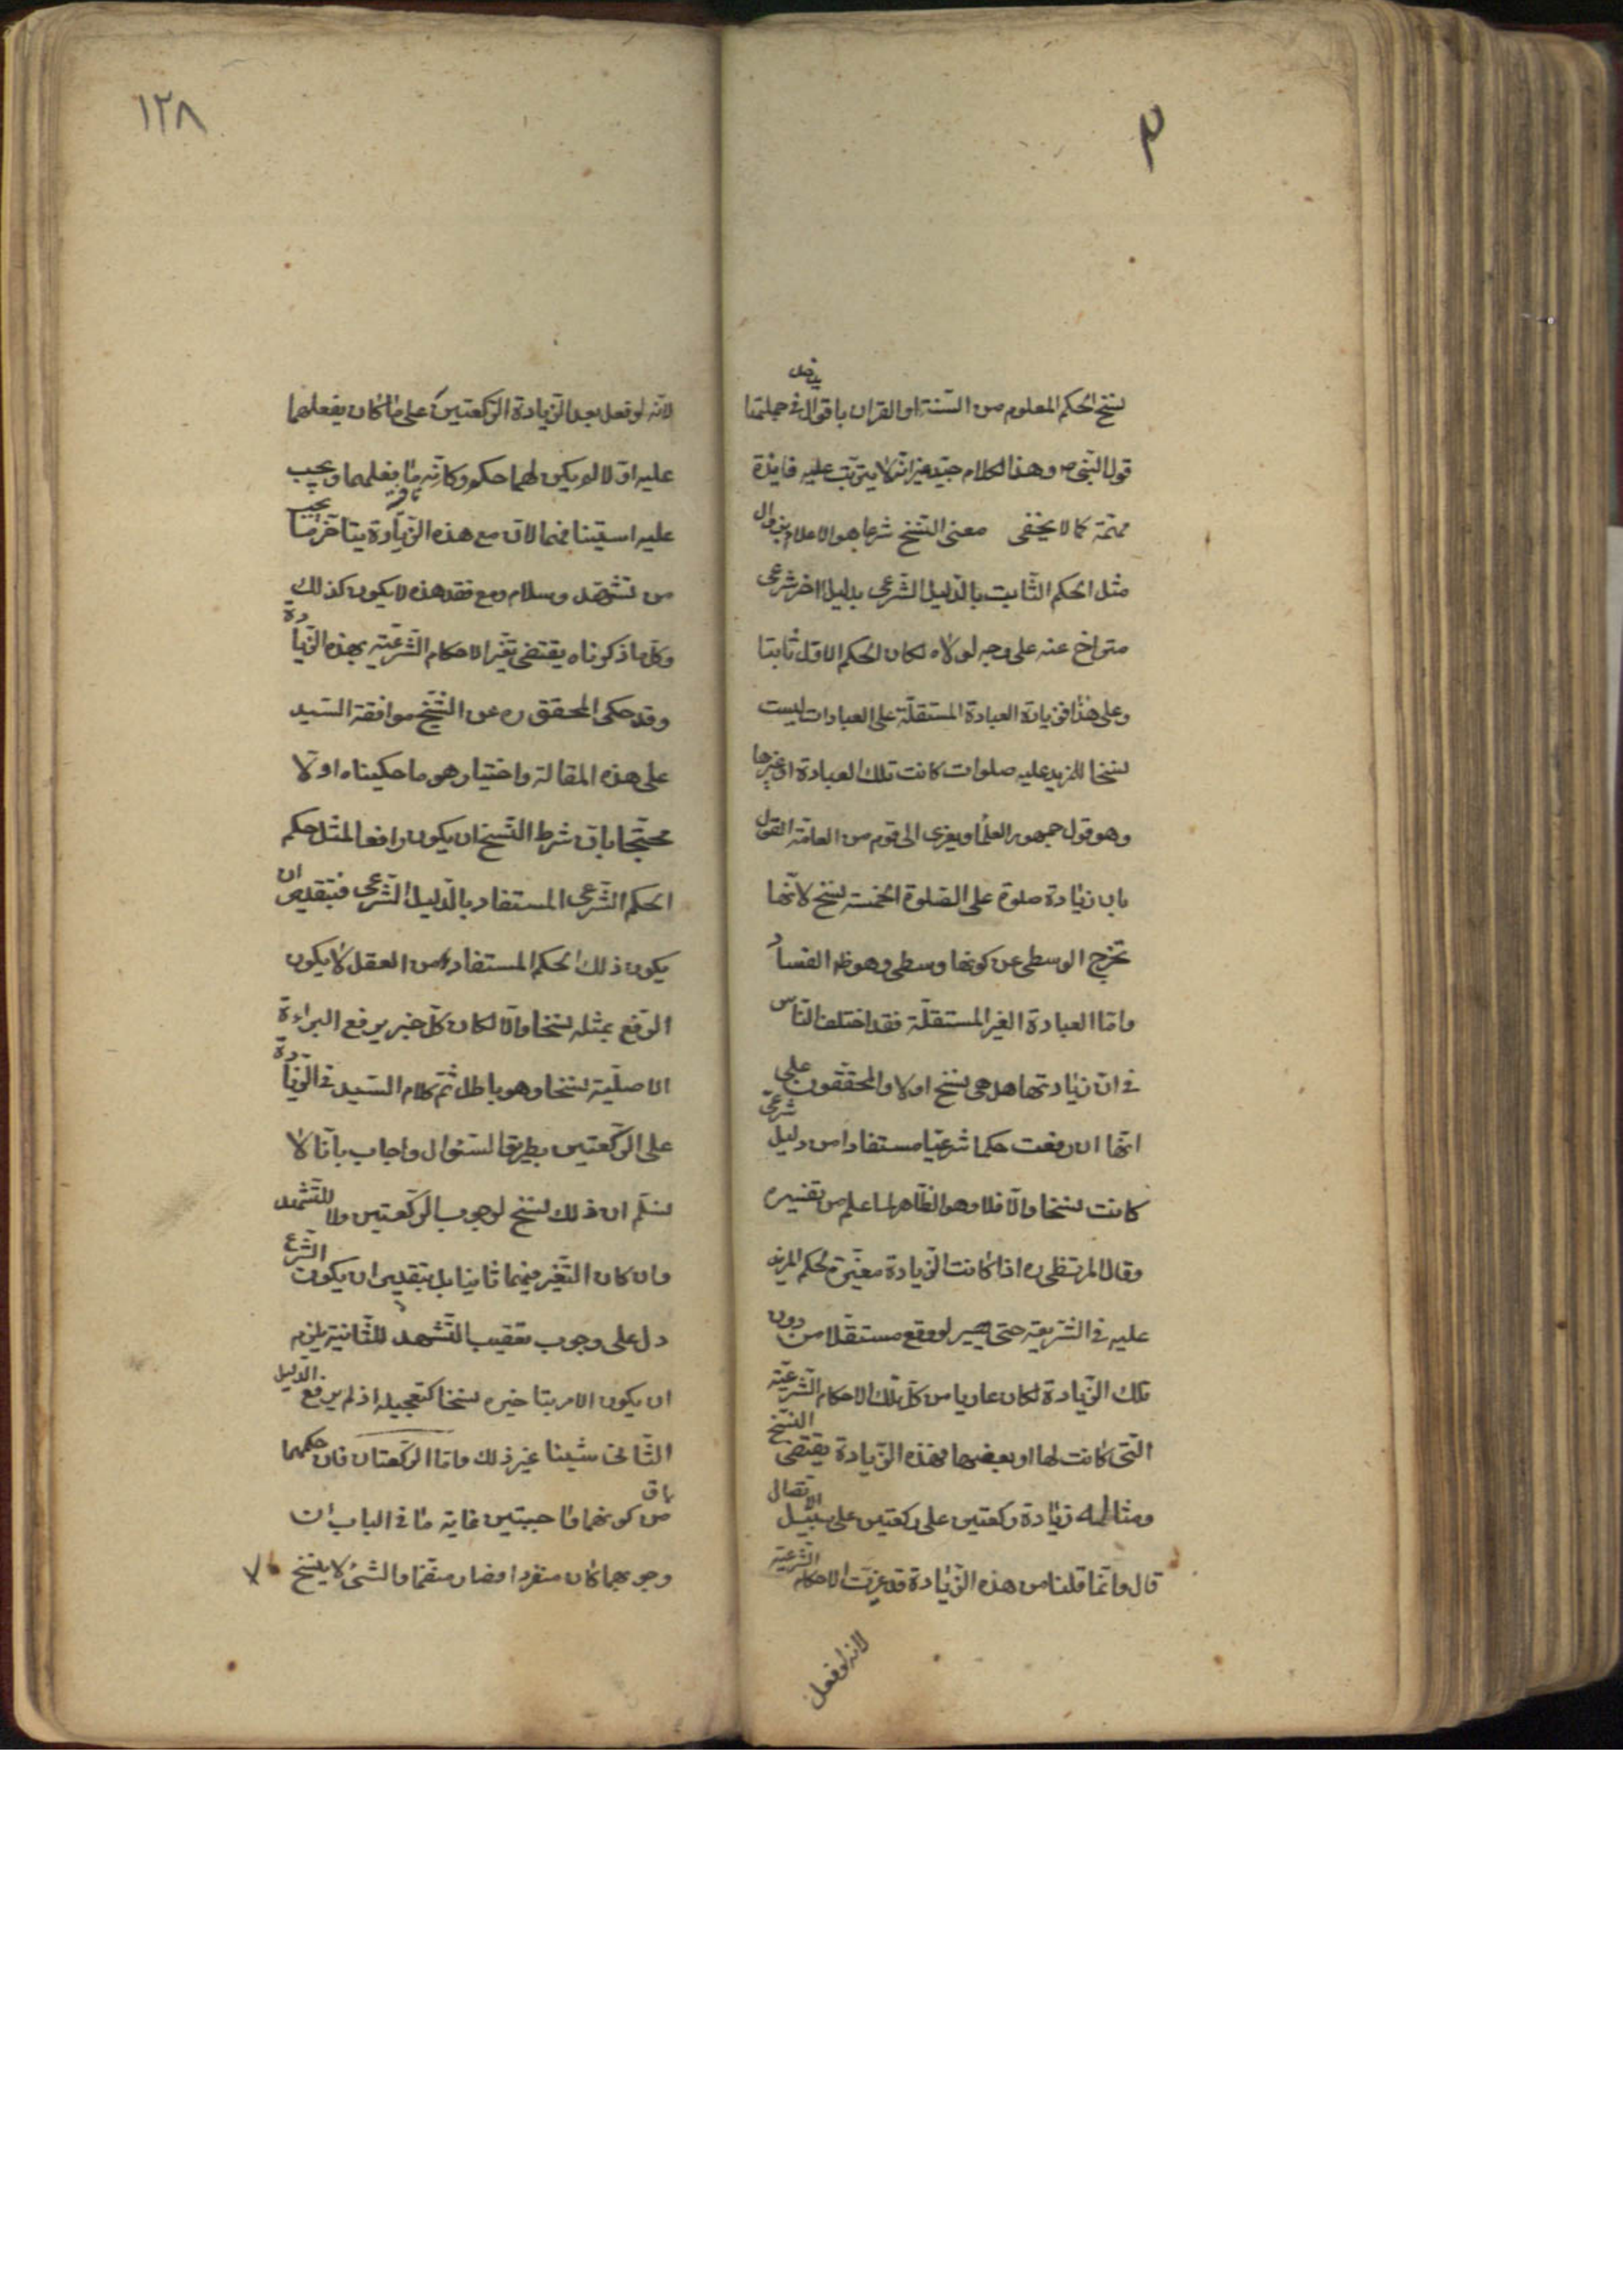 نسخ الحكم المعلوم من السّنة او القران باقوال يدخل في جملتها
قول النبي ص وهذا الكلام جيّد غير انّه لا يترتّب عليه فايدة
مهمّة كما لا يخفى معنى النّسخ شرعا هو الاعلام بزوال
مثل الحكم الثّابت بالدّليل الشّرعى بدليل اخر شرعى
متراخ عنه على وجه لولاه لكان الحكم الاوّل ثابتا
وعلى هذا فزيادة العبادة المستقلّة على العبادات ليست
نسخا للمزيد عليه صلوات كانت تلك العبادة او غيرها
وهو قول جمهور العلما ويعزى الى قوم من العامّة القول
بان زيادة صلوة على الصّلوة الخمسة نسخ لانّها
تخرج الوسطى عن كونها وسطى وهو ظه الفساد
وامّا العبادة الغير المستقلّة فقد اختلف النّاس
في انّ زيادتها هل هى نسخ او لا والمحقّقون على
انّها ان رفعت حكما شرعيّا مستفادا من دليل شرعىّ
كانت نسخا والّا فلا وهو الظّاهر لما علم من تفسيره
وقال المرتضى ره اذا كانت الزّيادة مغيّرة لحكم المزيد
عليه في الشّريعة حتى يصير لو وقع مستقلا من دون
تلك الزّيادة لكان عاريا من كلّ تلك الاحكام الشّرعيّة
الّتى كانت لها او بعضها فهذه الزّيادة يقتضى النّسخ
ومثاله زيادة ركعتين على ركعتين على سبيل الاتّصال
قال وانّما قلنا من هذه الزّيادة قد غيّرت الاحكام الشّرعيّة
لانه لو فعل
١٢٨
لانّه لو فعل بعد الزّيادة الرّكعتين على ما كان يفعلهما
عليه اوّلا لم يكن لهما حكم وكانّه ما فعلهما ويجب
عليه استينافهما لان مع هذه الزّيادة يتاخّر ما يجب
من تشهّد وسلام ومع فقد هذه لا يكون كذلك
وكلّ ما ذكرناه يقتضى تغيّر الاحكام الشّرعيّة بهذه الزّيادة
وقد حكى المحقق ره عن الشّيخ موافقة السّيد
على هذه المقالة واختيار هو ما حكيناه اوّلا
محتجّا بانّ شرط النّسخ ان يكون رافعا لمثل حكم
الحكم الشّرعى المستفاد بالدّليل الشّرعى فبتقدير ان
يكون ذلك الحكم المستفاد من العقل لا يكون
الرّفع بمثله نسخا والّا لكان كلّ خبر يرفع البراءة
الاصليّة نسخا وهو باطل ثمّ كلام السّيد في الزّيادة
على الرّكعتين بطريق السّئوال واجاب بانّا لا
نسلّم ان ذلك نسخ لوجوب الرّكعتين ولا للتّشهد
وان كان التّغيّر فيهما ثابتا بل بتقدير ان يكون الشّرع
دل على وجوب تعقيب التّشهد للثّانية يلزم
ان يكون الامر بتاخيره نسخا كتعجيله اذ لم يرفع الدّليل
الثّانى شيئا غير ذلك وامّا الرّكعتان فان حكمهما
باق من كونهما واجبتين غاية ما في الباب ان
وجوبهما كان منفردا فصار منضمّا والشّئ لا ينسخ